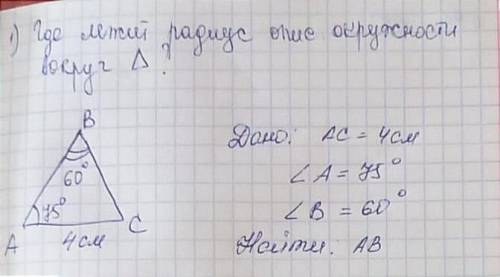 1) Где лежит радиус опис окружности
вокруг △?
B
60°
75°
A
C
4 см
Дано: AC = 4 см
∠A = 75°
∠B = 60°
Найти: AB